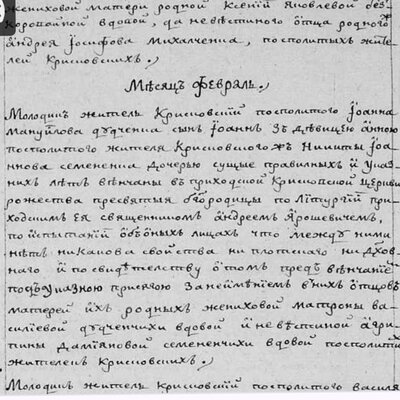 жениховой матери родной Ксенїи Яковлевой без
вдовой, да невѣстиного отца родного
андрея Іосифова Михалченка, посполитыхъ жите
лей Крисковскихъ.
Мѣсяцъ Февраль.
Молодикъ житель Крисковскїй посполитого Їоанна
Мануйлова сынъ Їоаннъ зъ дѣвицею анною
посполитого жителя Крисковского жъ Никиты Їоа
ннова семененка дочерью сущые правилныхъ и указ
ныхъ лѣтъ вѣнчаны въ приходской Крисковской церкви
рожества пресвятыя бгородицы по литургїй при
ходскимъ ея священникомъ андреемъ Ярошевичемъ,
по испытанїй обоюныхъ лицахъ что между ними
нѣтъ никакова свойства ни плотского ни дхов
наго и по свидѣтелству о томъ предъ вѣнчанїе
подъ указною присягою за неимѣнїемъ въ нихъ отцовъ
матерей ихъ родныхъ жениховой матроны ва
силїевой вдовой и невѣстиной
тины Дамїяновой семененчихи вдовой посполитыхъ
жителей Крисковскихъ.
Молодикъ житель Крисковскїй посполитого василя